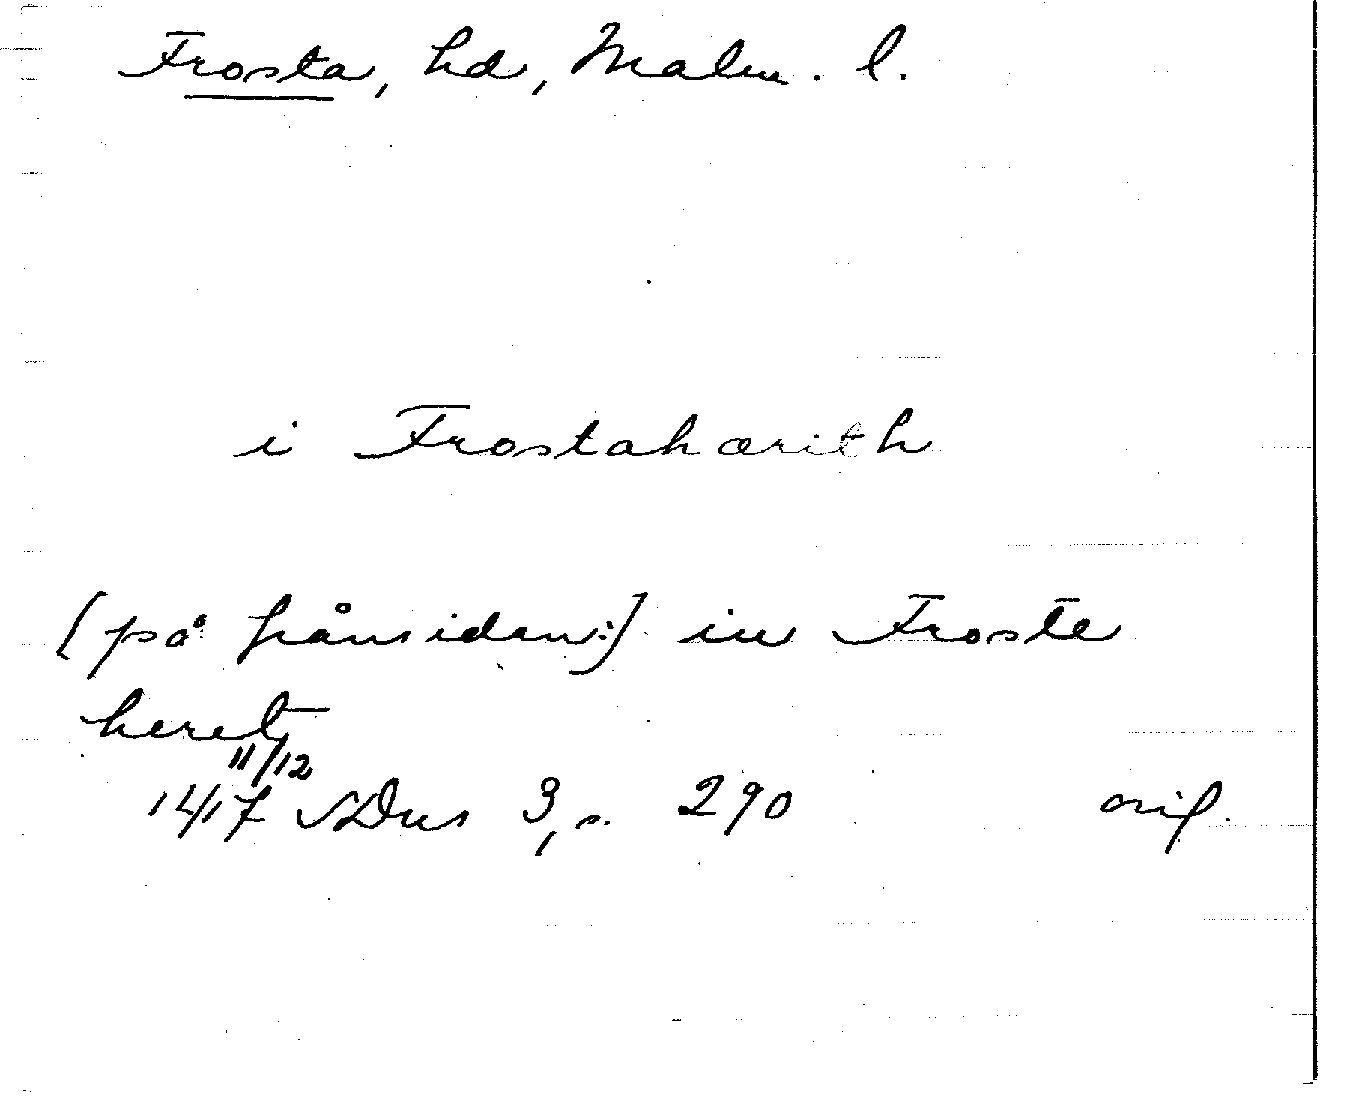 Frosta, hd, Malm. l.
i Frostahærith
[på frånsidan:] in Froste
heret
11/12
1417 SDns 3, s. 290 orig.